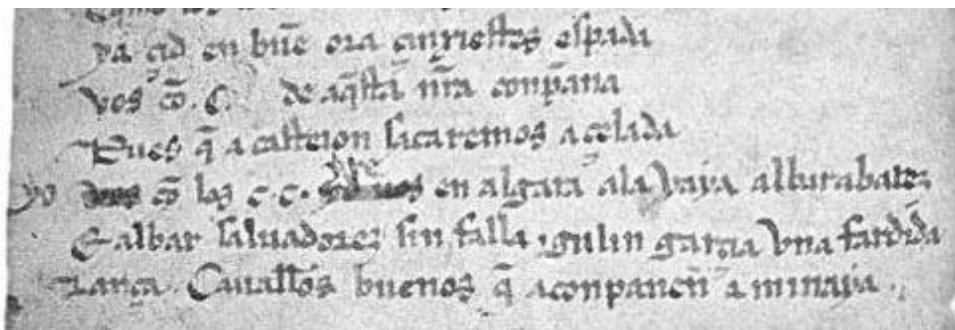 ya çid en buē ora çinxiestes espada
vos cō .C. de aq̄sta nr̄a conpana
Pues q̄ a casteion sacaremos a çelada
yo cō los .C.C. en algara ala vaya albarabarez
E albar saluadorez sin falla galin garçia vna fardida
Lança Caualleros buenos q̄ aconpanen a minaya.